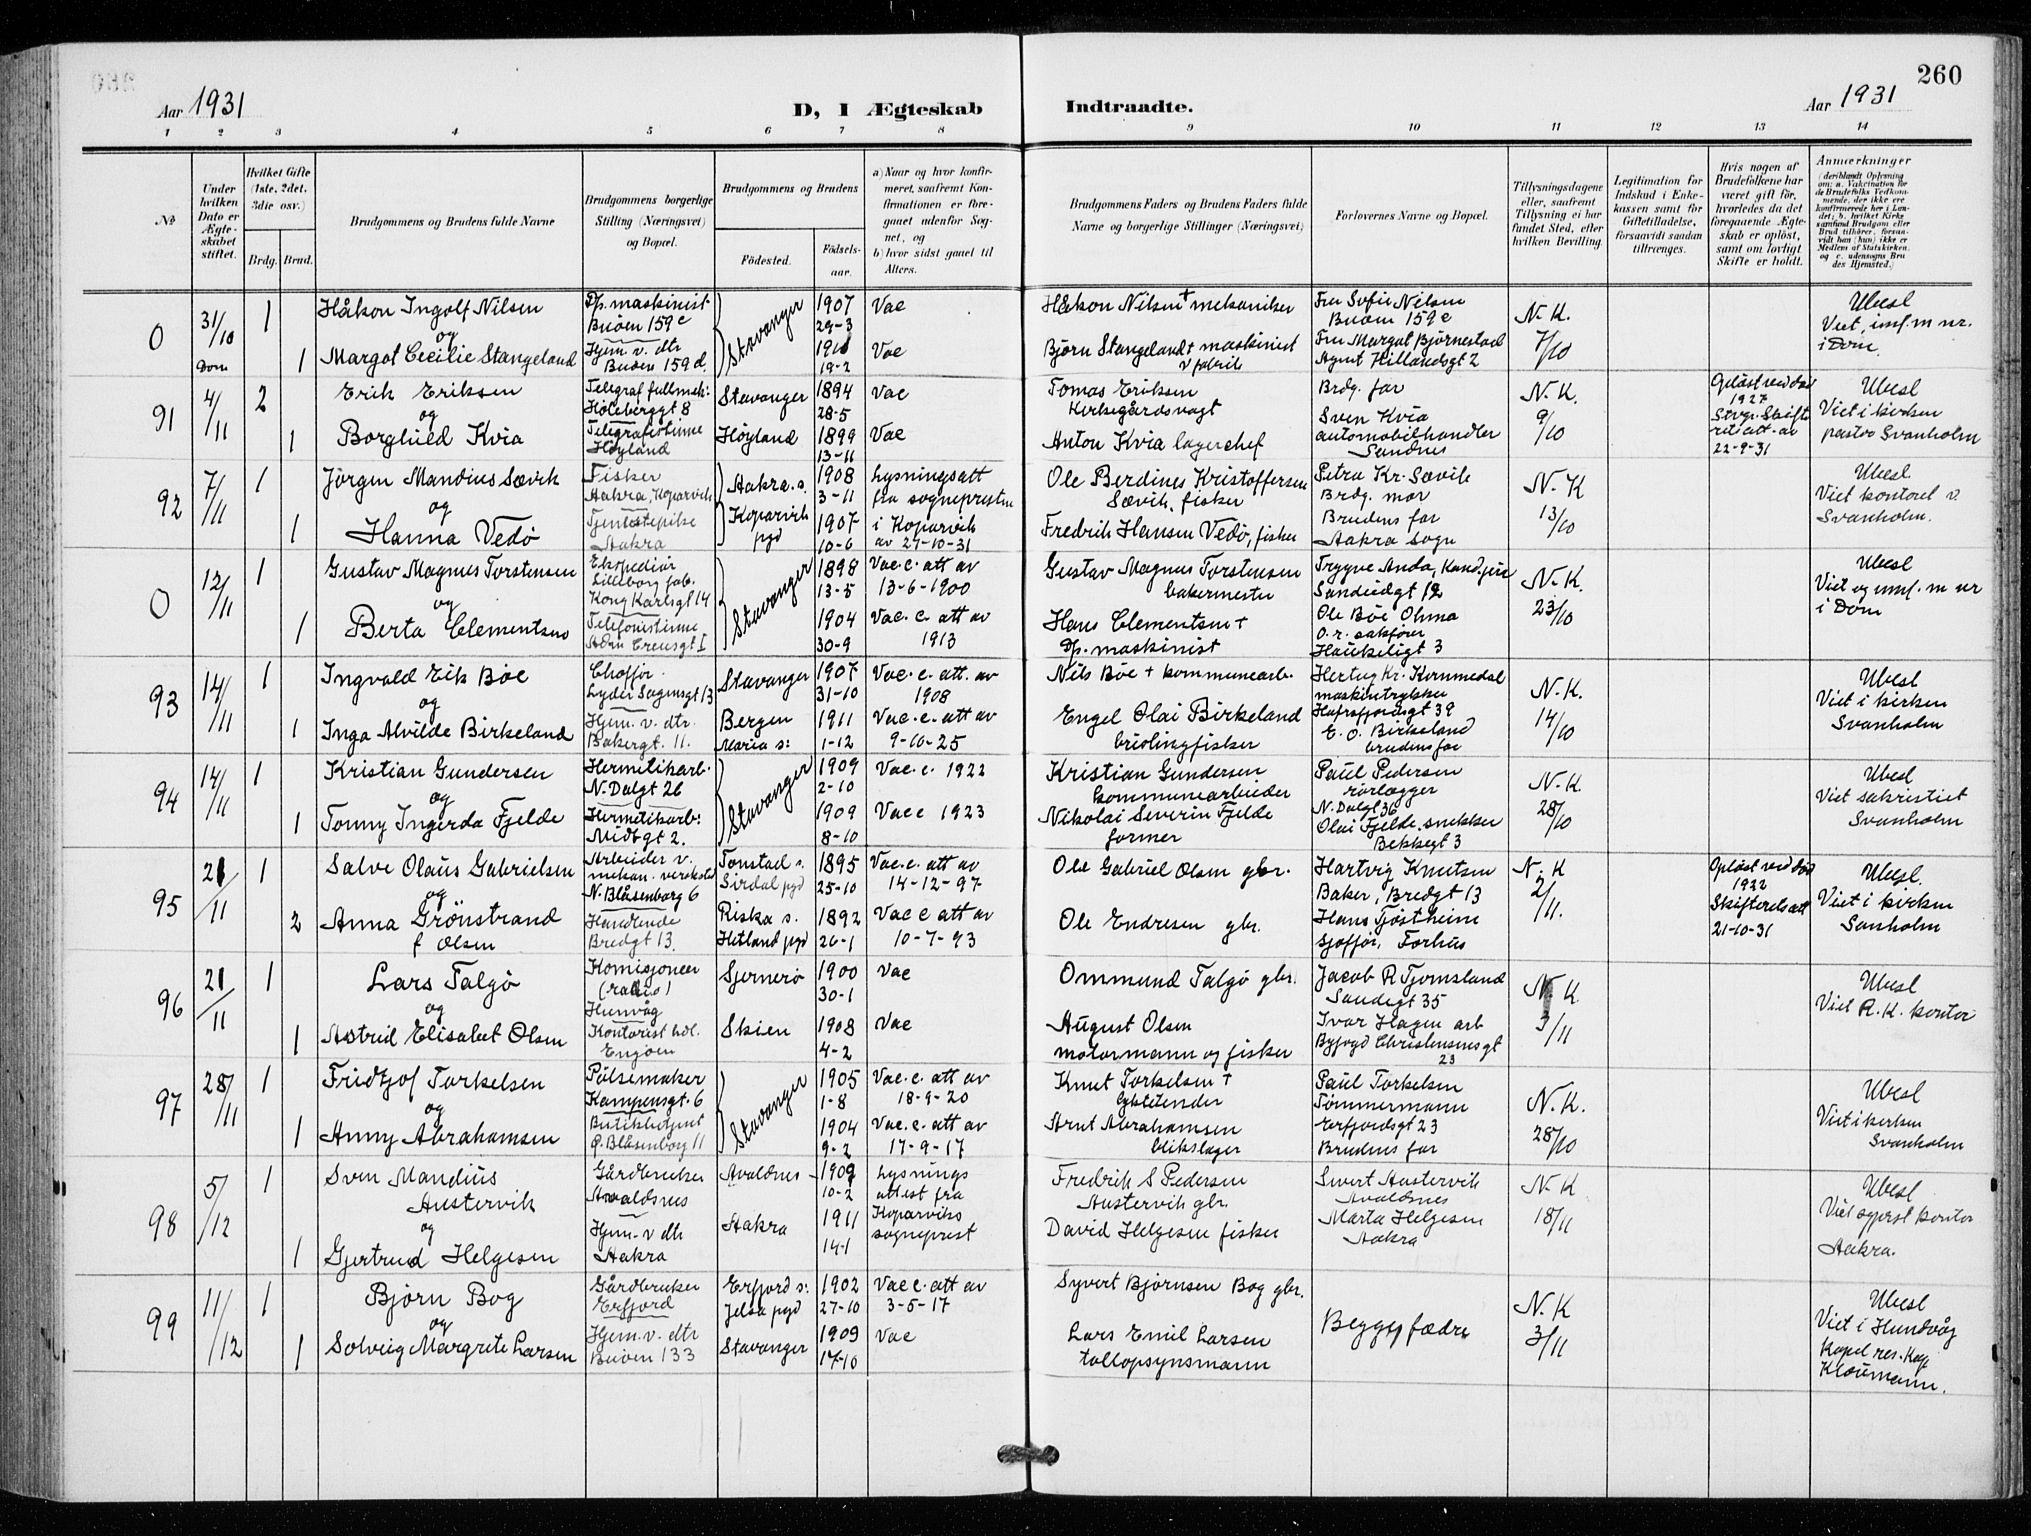 260
Aar 1931
D, I Ægteskab Indtraadte.
Aar 1931
1 2 3 4 5 6 7 8 9 10 11 12 13 14
№
Under hvilken Dato er Ægteskabet stiftet.
Hvilket Gifte (1ste, 2det, 3die osv.)
Brdg. Brud.
Brudgommens og Brudens fulde Navne
Brudgommens borgerlige Stilling (Næringsvei) og Bopæl.
Brudgommens og Brudens
Fødested.
Fødselsaar.
a) Naar og hvor konfirmeret, saafremt Konfirmationen er foregaaet udenfor Sognet, og
b) hvor sidst gaaet til Alters.
Brudgommens Faders og Brudens Faders fulde Navne og borgerlige Stillinger (Næringsvei)
Forlovernes Navne og Bopæl.
Tillysningsdagene eller, saafremt Tillysning ei har fundet Sted, efter hvilken Bevilling.
Legitimation for Indskud i Enkekassen samt for Giftetilladelse, forsaavidt saadan tiltrænges.
Hvis nogen af Brudefolkene har været gift før, hvorledes da det foregaaende Ægteskab er opløst, samt om lovligt Skifte er holdt.
Anmærkninger (deriblandt Oplysning om: a. Vakcination for de Brudefolks Vedkommende, der ikke ere konfirmerede her i Landet; b. hvilket Kirkesamfund Brudgom eller Brud tilhører, forsaavidt han (hun) ikke er Medlem af Statskirken, og c. udensogns Brudes Hjemsted.)
0 31/10 Dom 1 Håkon Ingolf Nilsen
og
1 Margot Cecilie Stangeland
Dp. maskinist
Buøen 159e
Hjem. v. dtr
Buøen 159 d.
Stavanger
1907
29-3
19-2
Vac
Vac
Håkon Nilsen + mekaniker
Björn Stangeland + maskinist
v fabrik
Fru Sofie Nilsen
Buøen 159 e
Fru Margot Björnestad
Agent Hillandsgt 2
N. K.
7/10
Ubesl
Viet, innf. m nr.
i Dom.
91 4/11 2 Erik Eriksen
og
1 Borghild Kvia
Telegraf fullmek:
Holeberggt 8
Telegrafistinne
Høyland
Stavanger
Høyland
1894
28-5
1899
13-11
Vac
Vac
Tomas Eriksen
Kirkegårdsvagt
Anton Kvia lagerchef
Brdg. far
Sven Kvia
automobilhandler
Sandnes
N. K.
9/10
Opløst ved död
1927
Stvgr. Skifte
ret att. av
22-9-31
Ubesl
Viet i kirken
pastor Svanholm
92 7/11 1 Jörgen Mandius Sævik
og
1 Hanna Vedø
Fisker
Aakra, Koparvik
Tjenestepike
Aakra
Aakra. s.
Koparvik
pgd
1908
3-11
1907
10-6
Lysningsatt
fra sogneprsten
i Koparvik
av 27-10-31
Ole Berdines Kristoffersen
Sævik, fisker
Fredrik Hansen Vedø, fisker
Petra Kr. Sævik
Brdg. mor
Brudens far
Aakra Sogn
N. K
13/10
Ubesl.
Viet kontoret v.
Svanholm.
0 12/11 1 Gustav Magnus Torstensen
og
1 Berta Clementsen
Ekspeditør
Lilleborg fab.
Kong Karlsgt 14
Telefonistinne
Stavanger
1898
13-5
1904
30-9
Vac. c. att av
13-6-1900
Vac. c. att av
1913
Gustav Magnus Torstensen
bakermester
Hans Clementsen +
Dp. maskinist
Trygve Anda, Kand. jur
Sandeidgt 12
Ole Bøe Ohma
o. r. sakfører
Haukeligt 3
N. K.
23/10
Ubesl
Viet og innf. m nr
i Dom
93 14/11 1 Ingvald Eik Bøe
og
1 Inga Alvilde Birkeland
Choffør.
Lyder Sagensgt 13
Hjem. v. dtr.
Bakergt. 11.
Stavanger
Bergen
Maria s:
1907
31-10
1911
1-12
Vac. c. att. av
1908
Vac. c. att av
9-10-25
Nils Bøe + kommunearb.
Engel Olai Birkeland
brislingfisker
Hertug Kr. Kornmedal
maskintrykker
Hafrsfjordsgt 39
E. O. Birkeland
brudens far
N. K.
14/10
Ubesl
Viet i kirken
Svanholm
94 14/11 1 Kristian Gundersen
og
1 Tonny Ingerda Fjelde
Hermetikarb.
N. Dalgt 26
Hermetikarb:
Midtgt 2.
Stavanger
1909
2-10
1909
8-10
Vac. c. 1922
Vac c 1923
Kristian Gundersen
kommunearbeider
Nikolai Severin Fjelde
former
Paul Pedersen
rørlegger
N. Dalgt 36
Olai Fjelde, snekker
Bekkegt 3
N. K.
28/10
Ubesl
Viet sakristiet
Svanholm
95 21/11 1 Salve Olaus Gabrielsen
og
2 Anna Grönstrand
f Olsen
Arbeider v.
mekan. verksted
N. Blåsenborg 6
Handlende
Bredgt 13.
Tonstad s.
Sirdal pgd
Riska s.
Hetland pgd
1895
25-10
1892
26-1
Vac. c. att av
14-12-97
Vac c att av
10-7-93
Ole Gabriel Olsen gbr.
Ole Endresen gbr.
Hartvig Knutsen
Baker, Bredgt 13
Hans Tjøstheim
sjoffør, Forhus
N. K
2/11.
Opløst ved död
1922
Skifterets att
21-10-31
Ubesl.
Viet i kirken
Svanholm
96 21/11 1 Lars Talgø
og
1 Astrid Elisabet Olsen
Komisjonær
(radio)
Hunvåg
Kontorist hdl.
Engøen
Sjernerø
Skien
1900
30-1
1908
4-2
Vac
Vac
Ommund Talgø gbr.
August Olsen
motormann og fisker
Jacob R Tjomsland
Sandeigt 35
Ivar Hagen arb
Byfogd Christensensgt
23
N. K.
3/11
Ubesl
Viet R. K. kontor
97 28/11 1 Fridtjof Torkelsen
og
1 Anny Abrahamsen
Pölsemaker
Kampensgt. 6
Ø. Blåsenborg 11
Stavanger
1905
1-8
1904
9-2
Vac. c. att av
18-9-20
Vac. c. att av
17-9-17
Knut Torkelsen +
lyktetender
Arnt Abrahamsen
blikslager
Paul Torkelsen
Tømmermann
Erfjordsgt 23
Brudens far
N. K.
28/10
Ubesl
Viet i kirken
Svanholm
98 5/12 1 Sven Mandius
Austervik
og
1 Gjertrud Helgesen
Gårdbruker
Avaldsnes
Hjem. v dtr
Aakra
Avaldsnes
Aakra
1909
10-2
1911
14-1
Lysnings
attest fra
Koparviks
sogneprest
Fredrik S Pedersen
Austervik gbr.
David Helgesen fisker
Sivert Austervik
Avaldsnes
Marta Helgesen
Aakra
N. K
18/11
Ubesl
Viet sgprst kontor
Aakra.
99 11/12 1 Bjørn Bog
og
1 Solveig Margrete Larsen
Gårdbruker
Erfjord
Hjem. v. dtr
Buøen 133
Erfjord s:
Jelsa pgd
Stavanger
1902
27-10
1909
17-10
Vac c. att av
3-5-17
Vac
Syvert Bjørnsen Bog gbr.
Lars Emil Larsen
tollopsynsmann
Begges fædre
N. K
3/11
Ubesl
Viet i Hundvåg
Kapel res. Kap